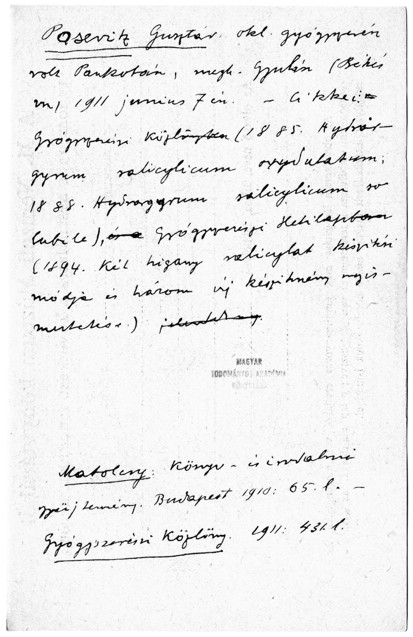 Posevitz Gusztáv. okl. gyógyszerész
volt Pankotán, megh. Gyulán (Békés
m.) 1911 junius 7 én. – Cikkei:
Gyógyszerészi Közlönyben (1885. Hydrar-
gyrum salicylicum oxydulatum;
1888. Hydrargyrum salicylicum so
lubile), és a Gyógyszerészi Hetilapban
(1894. Két higany salicylat készitési
módja és három új készitmény ös-
mertetése.) jelentek meg.
MAGYAR
TUDOMÁNYOS AKADÉMIA
KÖNYVTÁRA
Matolcsy: Könyv- és irodalmi
gyüjtemény. Budapest 1910: 65. l. –
Gyógyszerészi Közlöny. 1911: 431. l.